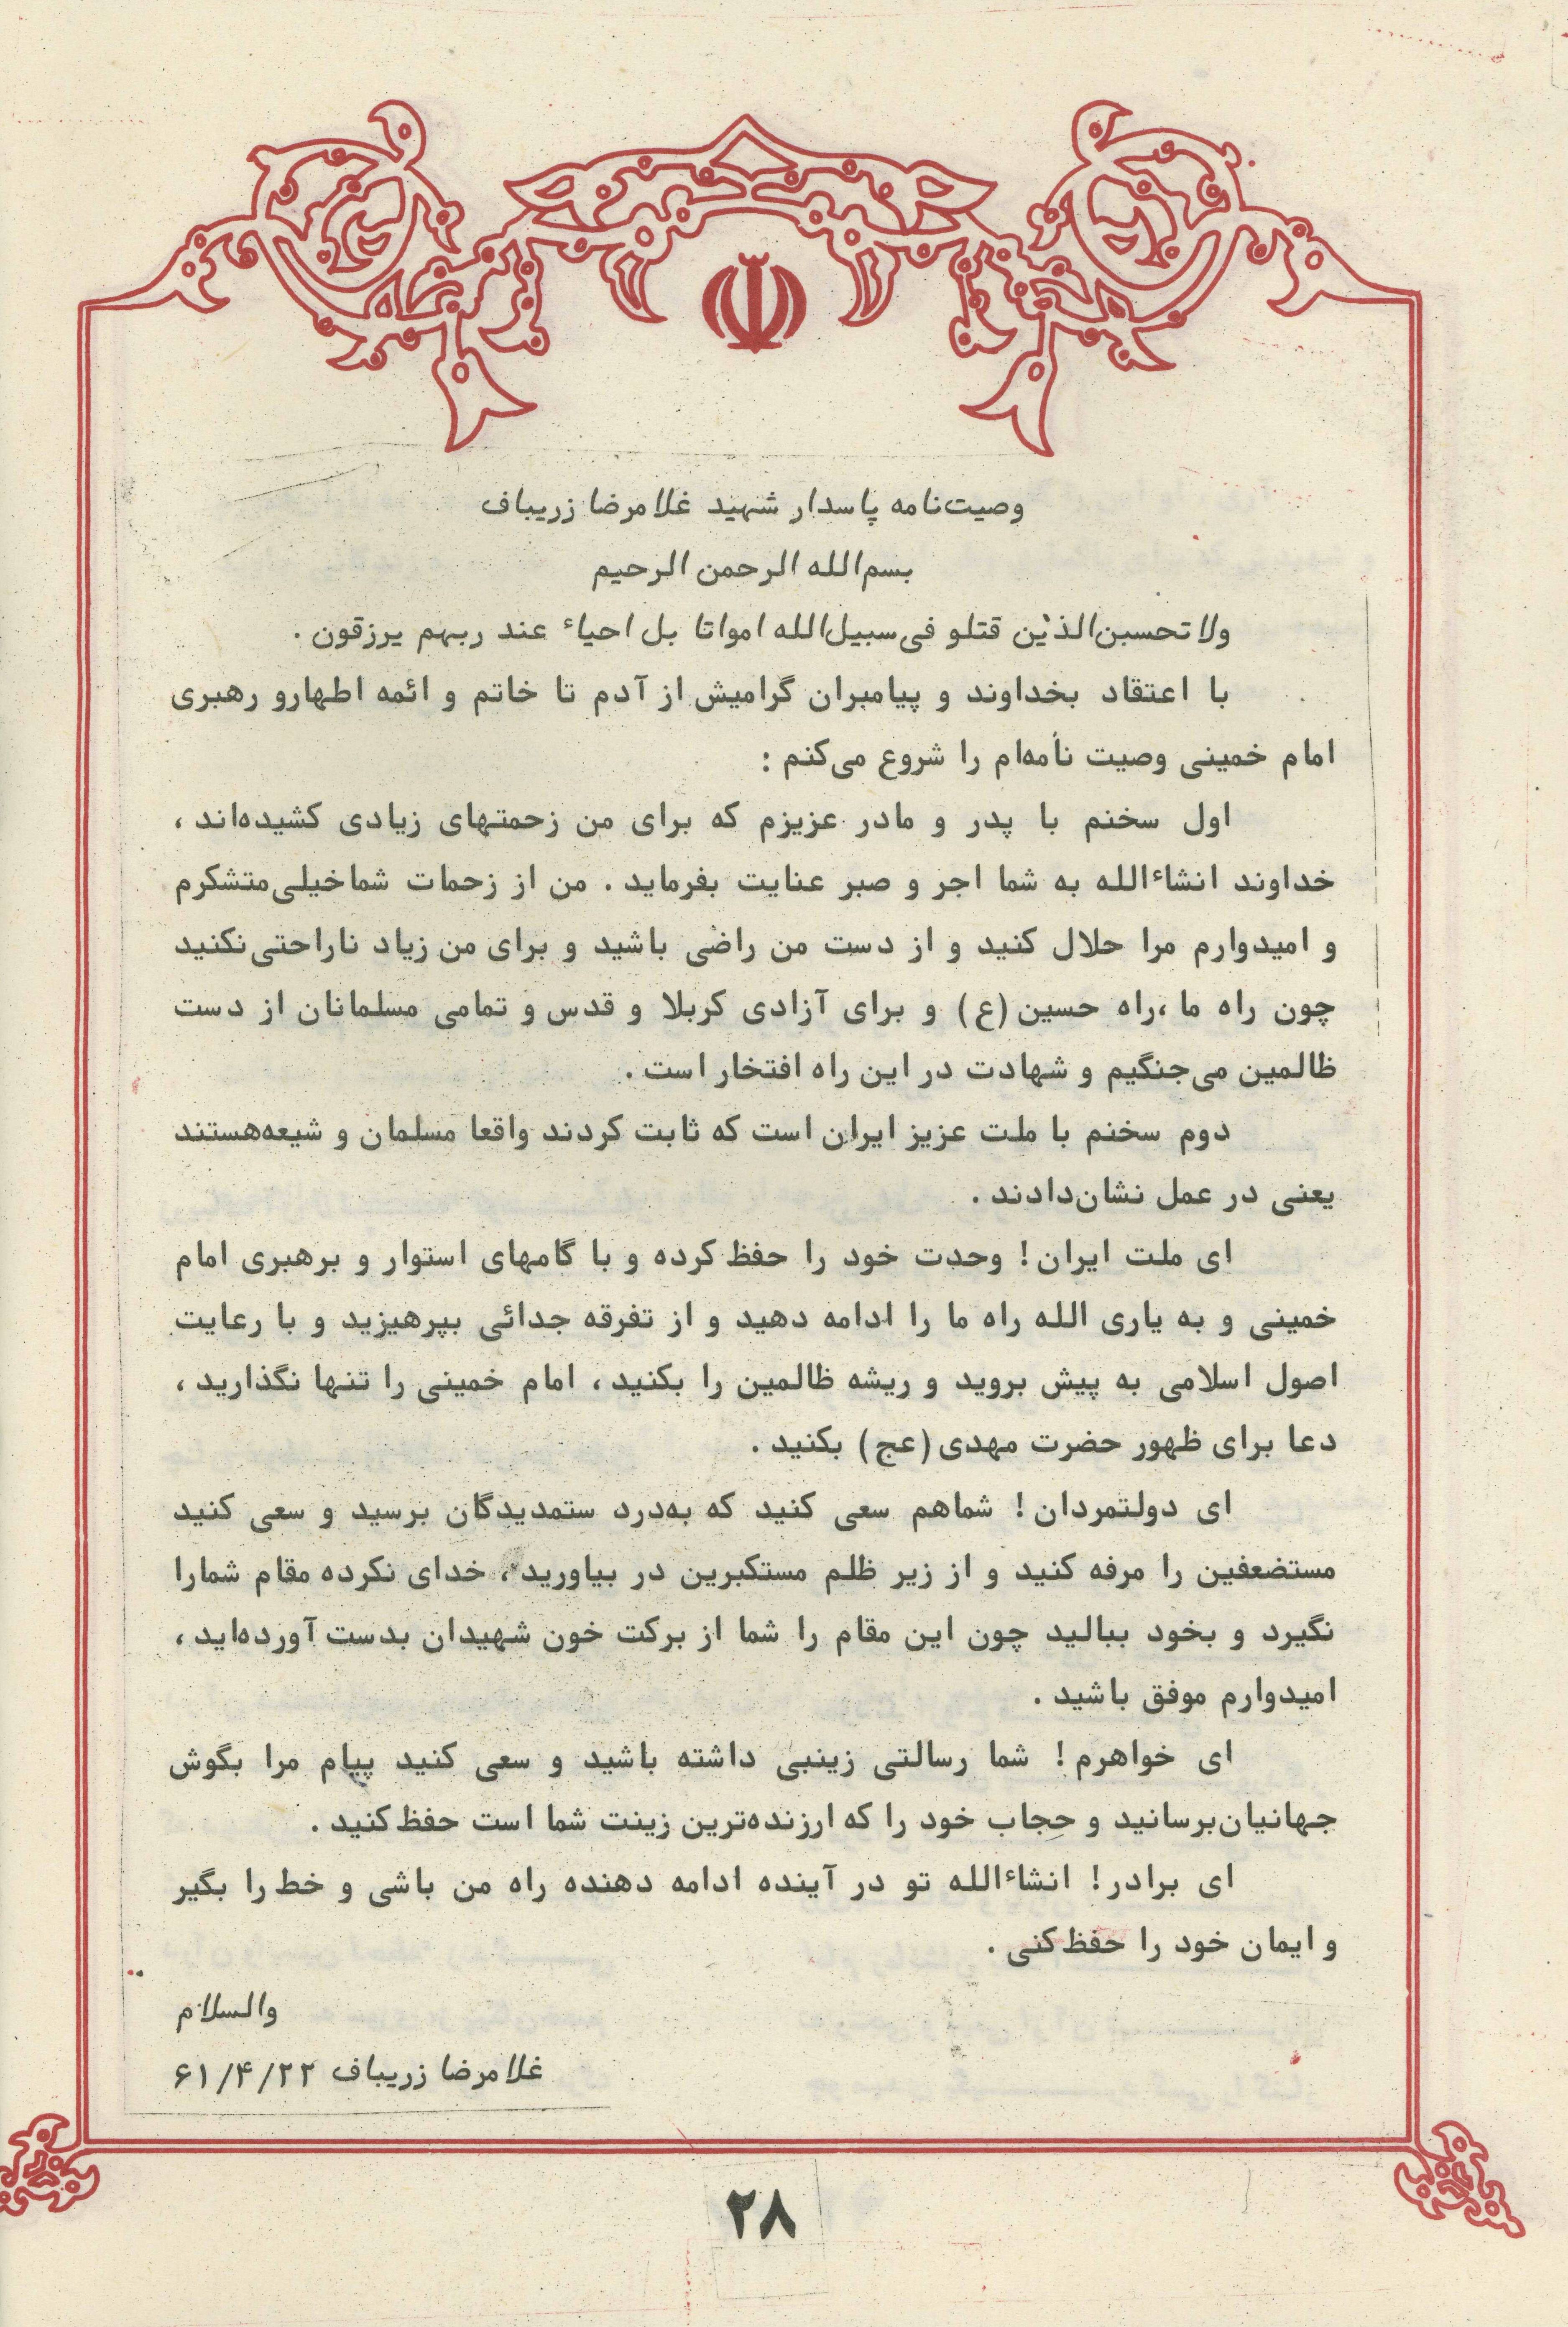 وصیت‌نامه پاسدار شهید غلامرضا زریباف
بسم‌الله الرحمن الرحیم
ولا تحسبن‌الذین قتلو فی‌سبیل‌الله امواتا بل احیاء عند ربهم یرزقون .
با اعتقاد بخداوند و پیامبران گرامیش از آدم تا خاتم و ائمه اطهارو رهبری
امام خمینی وصیت نامه‌ام را شروع می‌کنم :
اول سخنم با پدر و مادر عزیزم که برای من زحمتهای زیادی کشیده‌اند ،
خداوند انشاءالله به شما اجر و صبر عنایت بفرماید . من از زحمات شما خیلی متشکرم
و امیدوارم مرا حلال کنید و از دست من راضی باشید و برای من زیاد ناراحتی نکنید
چون راه ما ،راه حسین (ع) و برای آزادی کربلا و قدس و تمامی مسلمانان از دست
ظالمین می‌جنگیم و شهادت در این راه افتخار است .
دوم سخنم با ملت عزیز ایران است که ثابت کردند واقعا مسلمان و شیعه‌هستند
یعنی در عمل نشان‌دادند .
ای ملت ایران ! وحدت خود را حفظ کرده و با گامهای استوار و برهبری امام
خمینی و به یاری الله راه ما را ادامه دهید و از تفرقه جدائی بپرهیزید و با رعایت
اصول اسلامی به پیش بروید و ریشه ظالمین را بکنید ، امام خمینی را تنها نگذارید ،
دعا برای ظهور حضرت مهدی (عج) بکنید .
ای دولتمردان ! شماهم سعی کنید که به‌درد ستمدیدگان برسید و سعی کنید
مستضعفین را مرفه کنید و از زیر ظلم مستکبرین در بیاورید ، خدای نکرده مقام شمارا
نگیرد و بخود ببالید چون این مقام را شما از برکت خون شهیدان بدست آورده‌اید ،
امیدوارم موفق باشید .
ای خواهرم ! شما رسالتی زینبی داشته باشید و سعی کنید پیام مرا بگوش
جهانیان‌برسانید و حجاب خود را که ارزنده‌ترین زینت شما است حفظ کنید .
ای برادر ! انشاءالله تو در آینده ادامه دهنده راه من باشی و خط را بگیر
و ایمان خود را حفظ کنی .
والسلام
غلامرضا زریباف ۶۱/۴/۲۲
۲۸